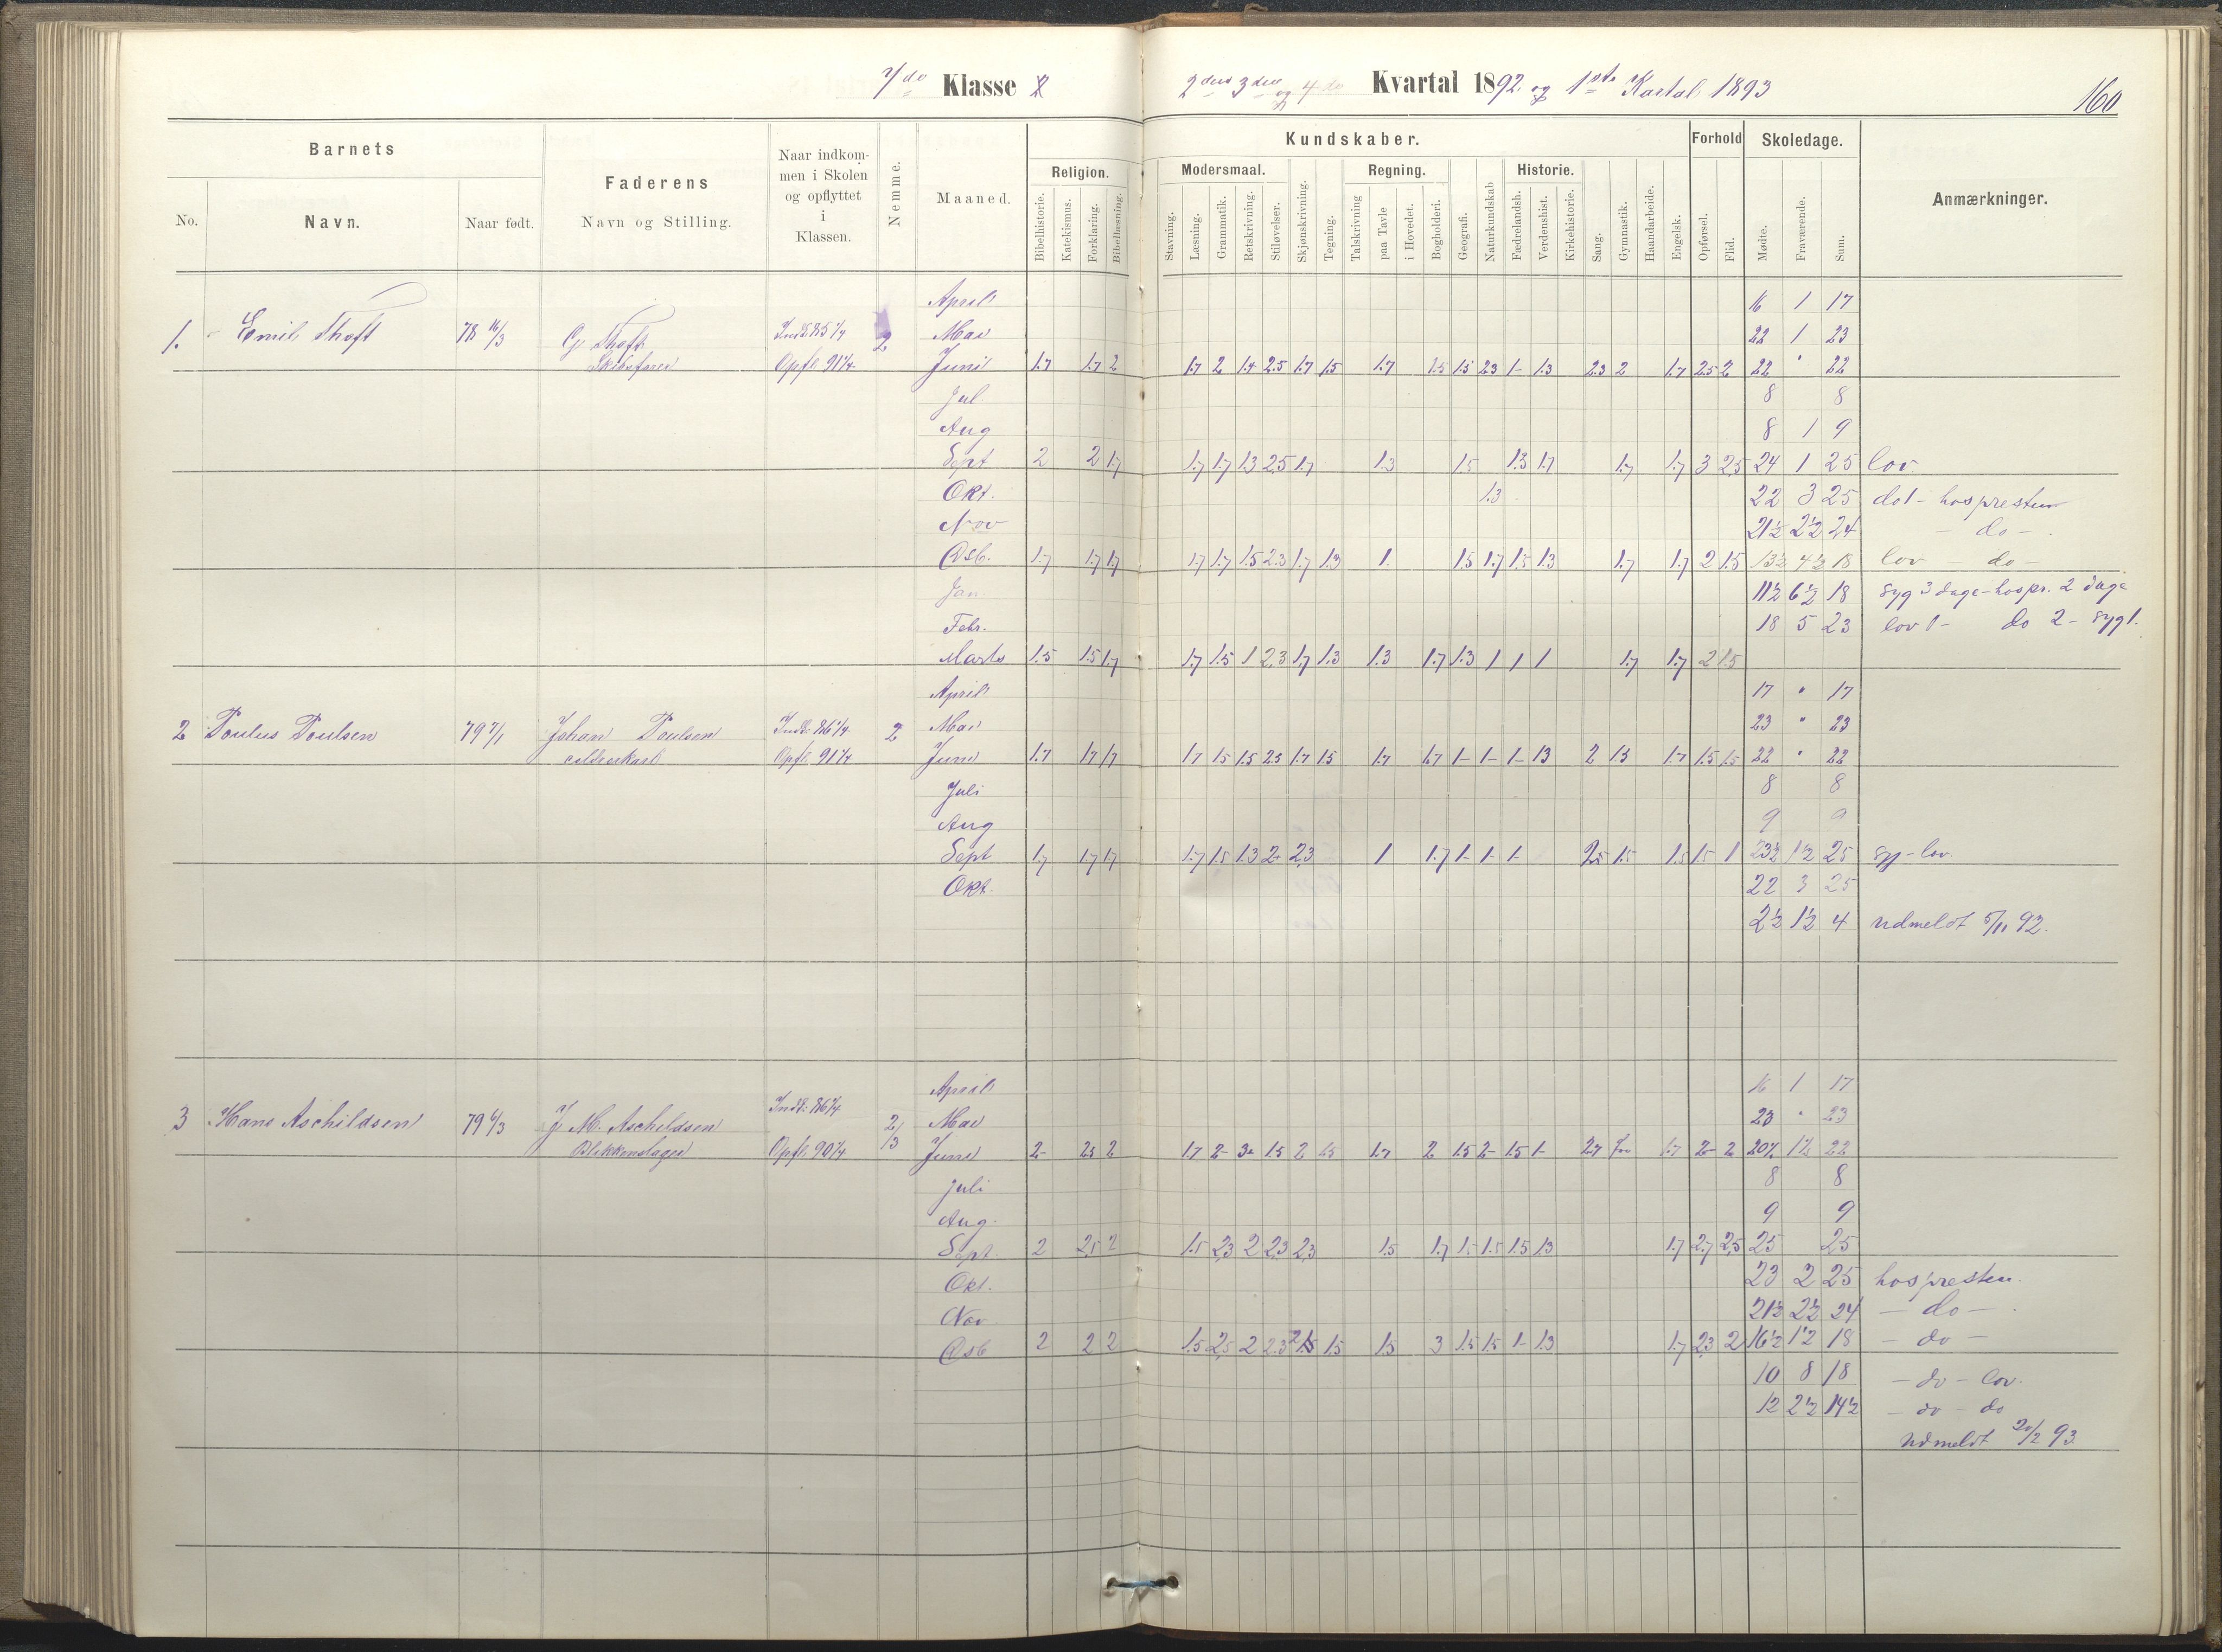 7de Klasse
2det 3die og 4de Kvartal 1892 og 1ste Kvartal 1893
160
Barnets
Faderens
Naar indkom-
men i Skolen
og opflyttet
i
Klassen.
Nemme.
Maaned.
Kundskaber.
Forhold
Skoledage.
Anmærkninger.
No.
Navn.
Naar født.
Navn og Stilling.
Religion.
Modersmaal.
Regning.
Historie.
Bibelhistorie.
Katekismus.
Forklaring.
Bibellæsning.
Stavning.
Læsning.
Grammatik.
Retskrivning.
Stiløvelser.
Skjønskrivning.
Tegning.
Talskrivning
paa Tavle
i Hovedet.
Bogholderi.
Geografi.
Naturkundskab
Fædrelandsh.
Verdenshist.
Kirkehistorie.
Sang.
Gymnastik.
Haandarbeide.
Engelsk.
Opførsel.
Flid.
Mødte.
Fraværende.
Sum.
April 16 1 17
1. Emil Thoft 78 16/3 G Thoft Indk: 85 1/4 2 Mai 22 1 23
Opfl. 91 1/4 Juni 1.7 1.7 2 1.7 2 1.4 2.5 1.7 1.5 1.7 1.5 1.5 2.3 1- 1.3 2.3 2 1.7 2.5 2 22 " 22
Jul 8 8
Aug 8 1 9
Sept 2 2 1.7 1.7 1.7 1.3 2.5 1.7 1.3 1.5 1.3 1.7 1.7 1.7 3 2.5 24 1 25 lov
Okt. 1.3 22 3 25 do 1 - hos presten
Nov 21½ 2½ 24 - do -
Dsb. 1.7 1.7 1.7 1.7 1.7 1.5 2.3 1.7 1.3 1. 1.5 1.7 1.5 1.3 1.7 1.7 2 1.5 13½ 4½ 18 lov - do -
Jan 11½ 6½ 18 syg 3 dage - hos pr. 2 dage
Febr. 18 5 23 lov 1 - do 2 - syg 1.
Marts 1.5 1.5 1.7 1.7 1.5 1 2.3 1.7 1.3 1.3 1.7 1.3 1 1 1 1.7 1.7 2 1.5
April 17 " 17
2 Poulus Poulsen 79 7/1 Johan Poulsen Indk: 86 1/4 2 Mai 23 " 23
Opfl. 91 1/4 Juni 1.7 1.7 1.7 1.7 1.5 1.5 2.3 1.7 1.5 1.7 1.7 1- 1- 1- 1.3 2 1.5 1.7 1.5 1.5 22 " 22
Juli 8 8
Aug 9 9
Sept 1.7 1.7 1.7 1.7 1.5 1.3 2 2.3 1 1.7 1- 1- 1- 2.5 1.5 1.5 1.5 1 23½ 1½ 25 syg - lov
Okt. 22 3 25
2½ 1½ 4 udmeldt 5/11 92.
April 16 1 17
3 Hans Aschildsen 79 6/3 J. M. Aschildsen Indk: 86 1/4 2/3 Mai 23 " 23
Blikkenslager Opfl. 90 1/4 Juni 2- 2.5 2 1.7 2- 3- 1.5 2 1.5 1.7 2 1.5 2- 1.5 1- 2.7 1.7 2- 2 20½ 1½ 22
Juli 8 8
Aug. 9 9
Sept 2 2.5 2 1.5 2.3 2 2.3 2.3 1.5 1.7 1.5 1.5 1.5 1.3 1.7 2.7 2.5 25 25
Okt. 23 2 25 hos presten.
Nov 21½ 2½ 24 - do - .
Dsb 2 2 2 1.5 2.5 2 2.3 1.5 1.5 3 1.5 1.5 1- 1.3 1.7 2.3 2 16½ 1½ 18 - do -
10 8 18 - do - lov.
12 2½ 14½ - do - do
Udmeldt 20/2 93